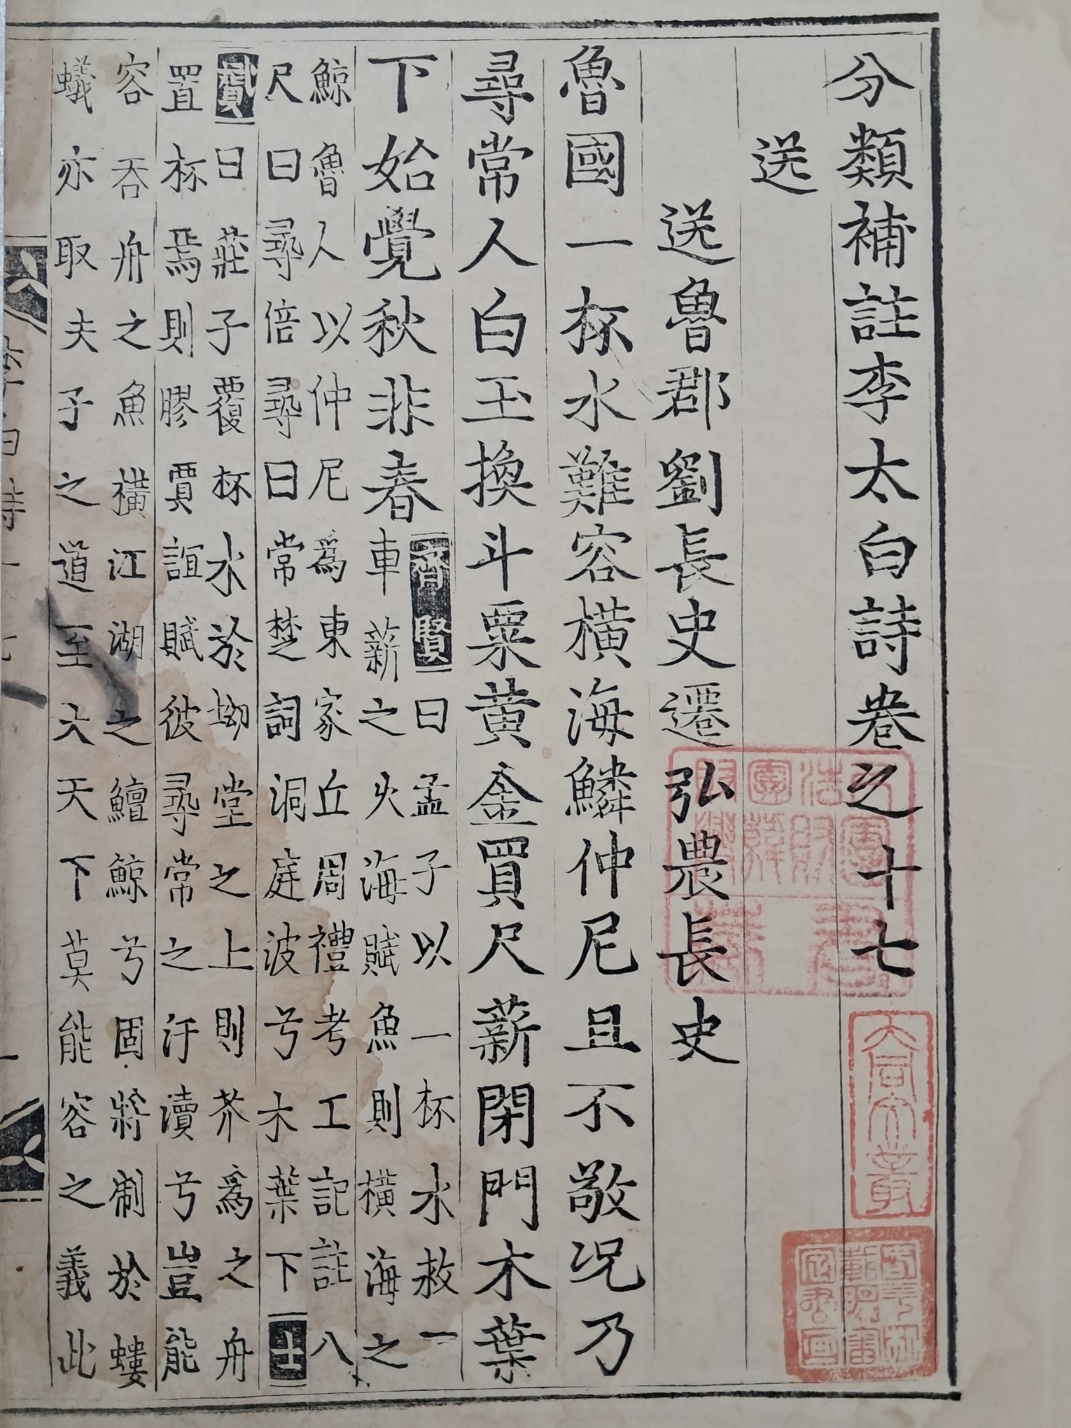 分類補註李太白詩卷之十七
送
送魯郡劉長史遷弘農長史
魯國一杯水難容橫海鱗仲尼且不敬況乃
尋常人白玉換斗粟黃金買尺薪閉門木葉
下始覺秋非春
齊賢曰孟子以一杯水救一
車薪之火海賦魚則橫海之
鯨魯人以仲尼爲東家丘周禮考工記註八
尺曰尋倍尋曰常楚詞洞庭波兮木葉下士
贇曰莊子覆杯水於坳堂之上則芥爲之舟
置杯焉則膠賈誼賦彼尋常之汙瀆兮豈能
容吞舟之魚橫江湖之鱣鯨兮固將制於螻
蟻亦取夫子之道至大天下莫能容之義此